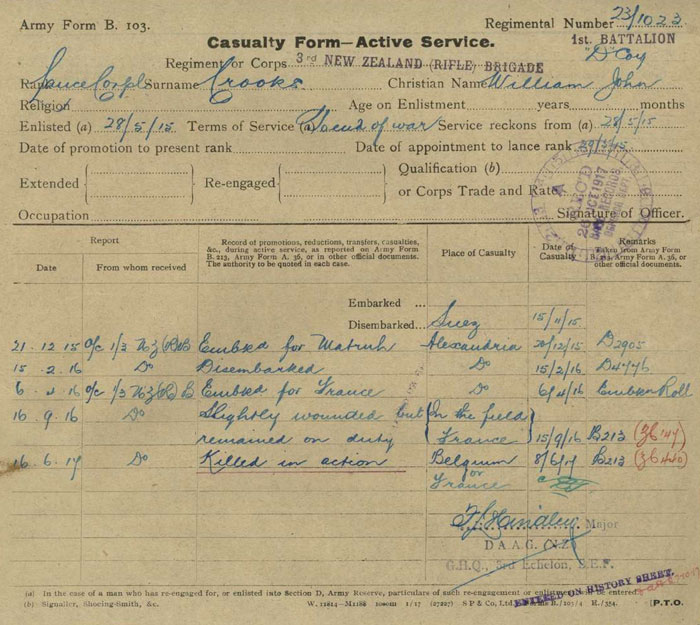 Army Form B. 103.
Regimental Number 23/1023
1st. BATTALION
Casualty Form—Active Service.
"D" Coy
Regiment or Corps 3rd NEW ZEALAND (RIFLE) BRIGADE
Rank Lance Corpl Surname Crooks Christian Name William John
Religion Age on Enlistment years months
Enlisted (a) 28/5/15 Terms of Service (a) Period of war Service reckons from (a) 28/5/15
Date of promotion to present rank Date of appointment to lance rank
Extended Re-engaged Qualification (b)
or Corps Trade and Rate
Occupation Signature of Officer.
Report
Date
From whom received
Record of promotions, reductions, transfers, casualties,
&c., during active service, as reported on Army Form
B. 213, Army Form A. 36, or in other official documents.
The authority to be quoted in each case.
Place of Casualty
Date of
Casualty
Remarks
Taken from Army Form
B. 213, Army Form A. 36, or
other official documents.
Embarked ...
Disembarked... Suez 15/11/15
21.12.15 O/C 1/3 NZ(R)B Embkd for Matruh Alexandria 20/12/15 D2905
15.2.16 Do Disembarked Do 15/2/16 D4776
6.4.16 O/C 1/3 NZ(R)B Embkd for France Do 6/4/16 Embkn Roll
16.9.16 Do Slightly wounded but In the field
remained on duty France 15/9/16 B213
16.6.17 Do Killed in action Belgium 8/6/17 B213
or
France
Major
D A A G. (N.Z.)
G.H.Q., 3rd Echelon, B.E.F.
ENTERED ON HISTORY SHEET.
(a) In the case of a man who has re-engaged for, or enlisted into Section D, Army Reserve, particulars of such re-engagement or enlistment will be entered.
(b) Signaller, Shoeing-Smith, &c. W. 12814—M1188 1000m 1/17 (27227) S P & Co., Ltd. Forms B./103/4 R./354. [P.T.O.